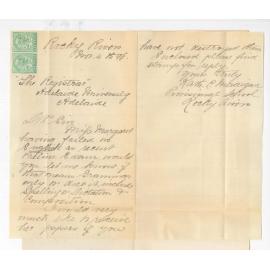 Rocky River
Nov. 4th 98.
The Registrar
Adelaide University
Adelaide
Dr Sir
Miss Marganl
having failed in
English at recent
Exam would
you let me know if
that means Grammar
only or does it include
Spelling or Dictation &
Composition
I would very
much like to receive
her papers if you
have not destroyed them
Enclosed please find
stamps for reply
Yours truly
Kath C
Provisional School
Rocky River